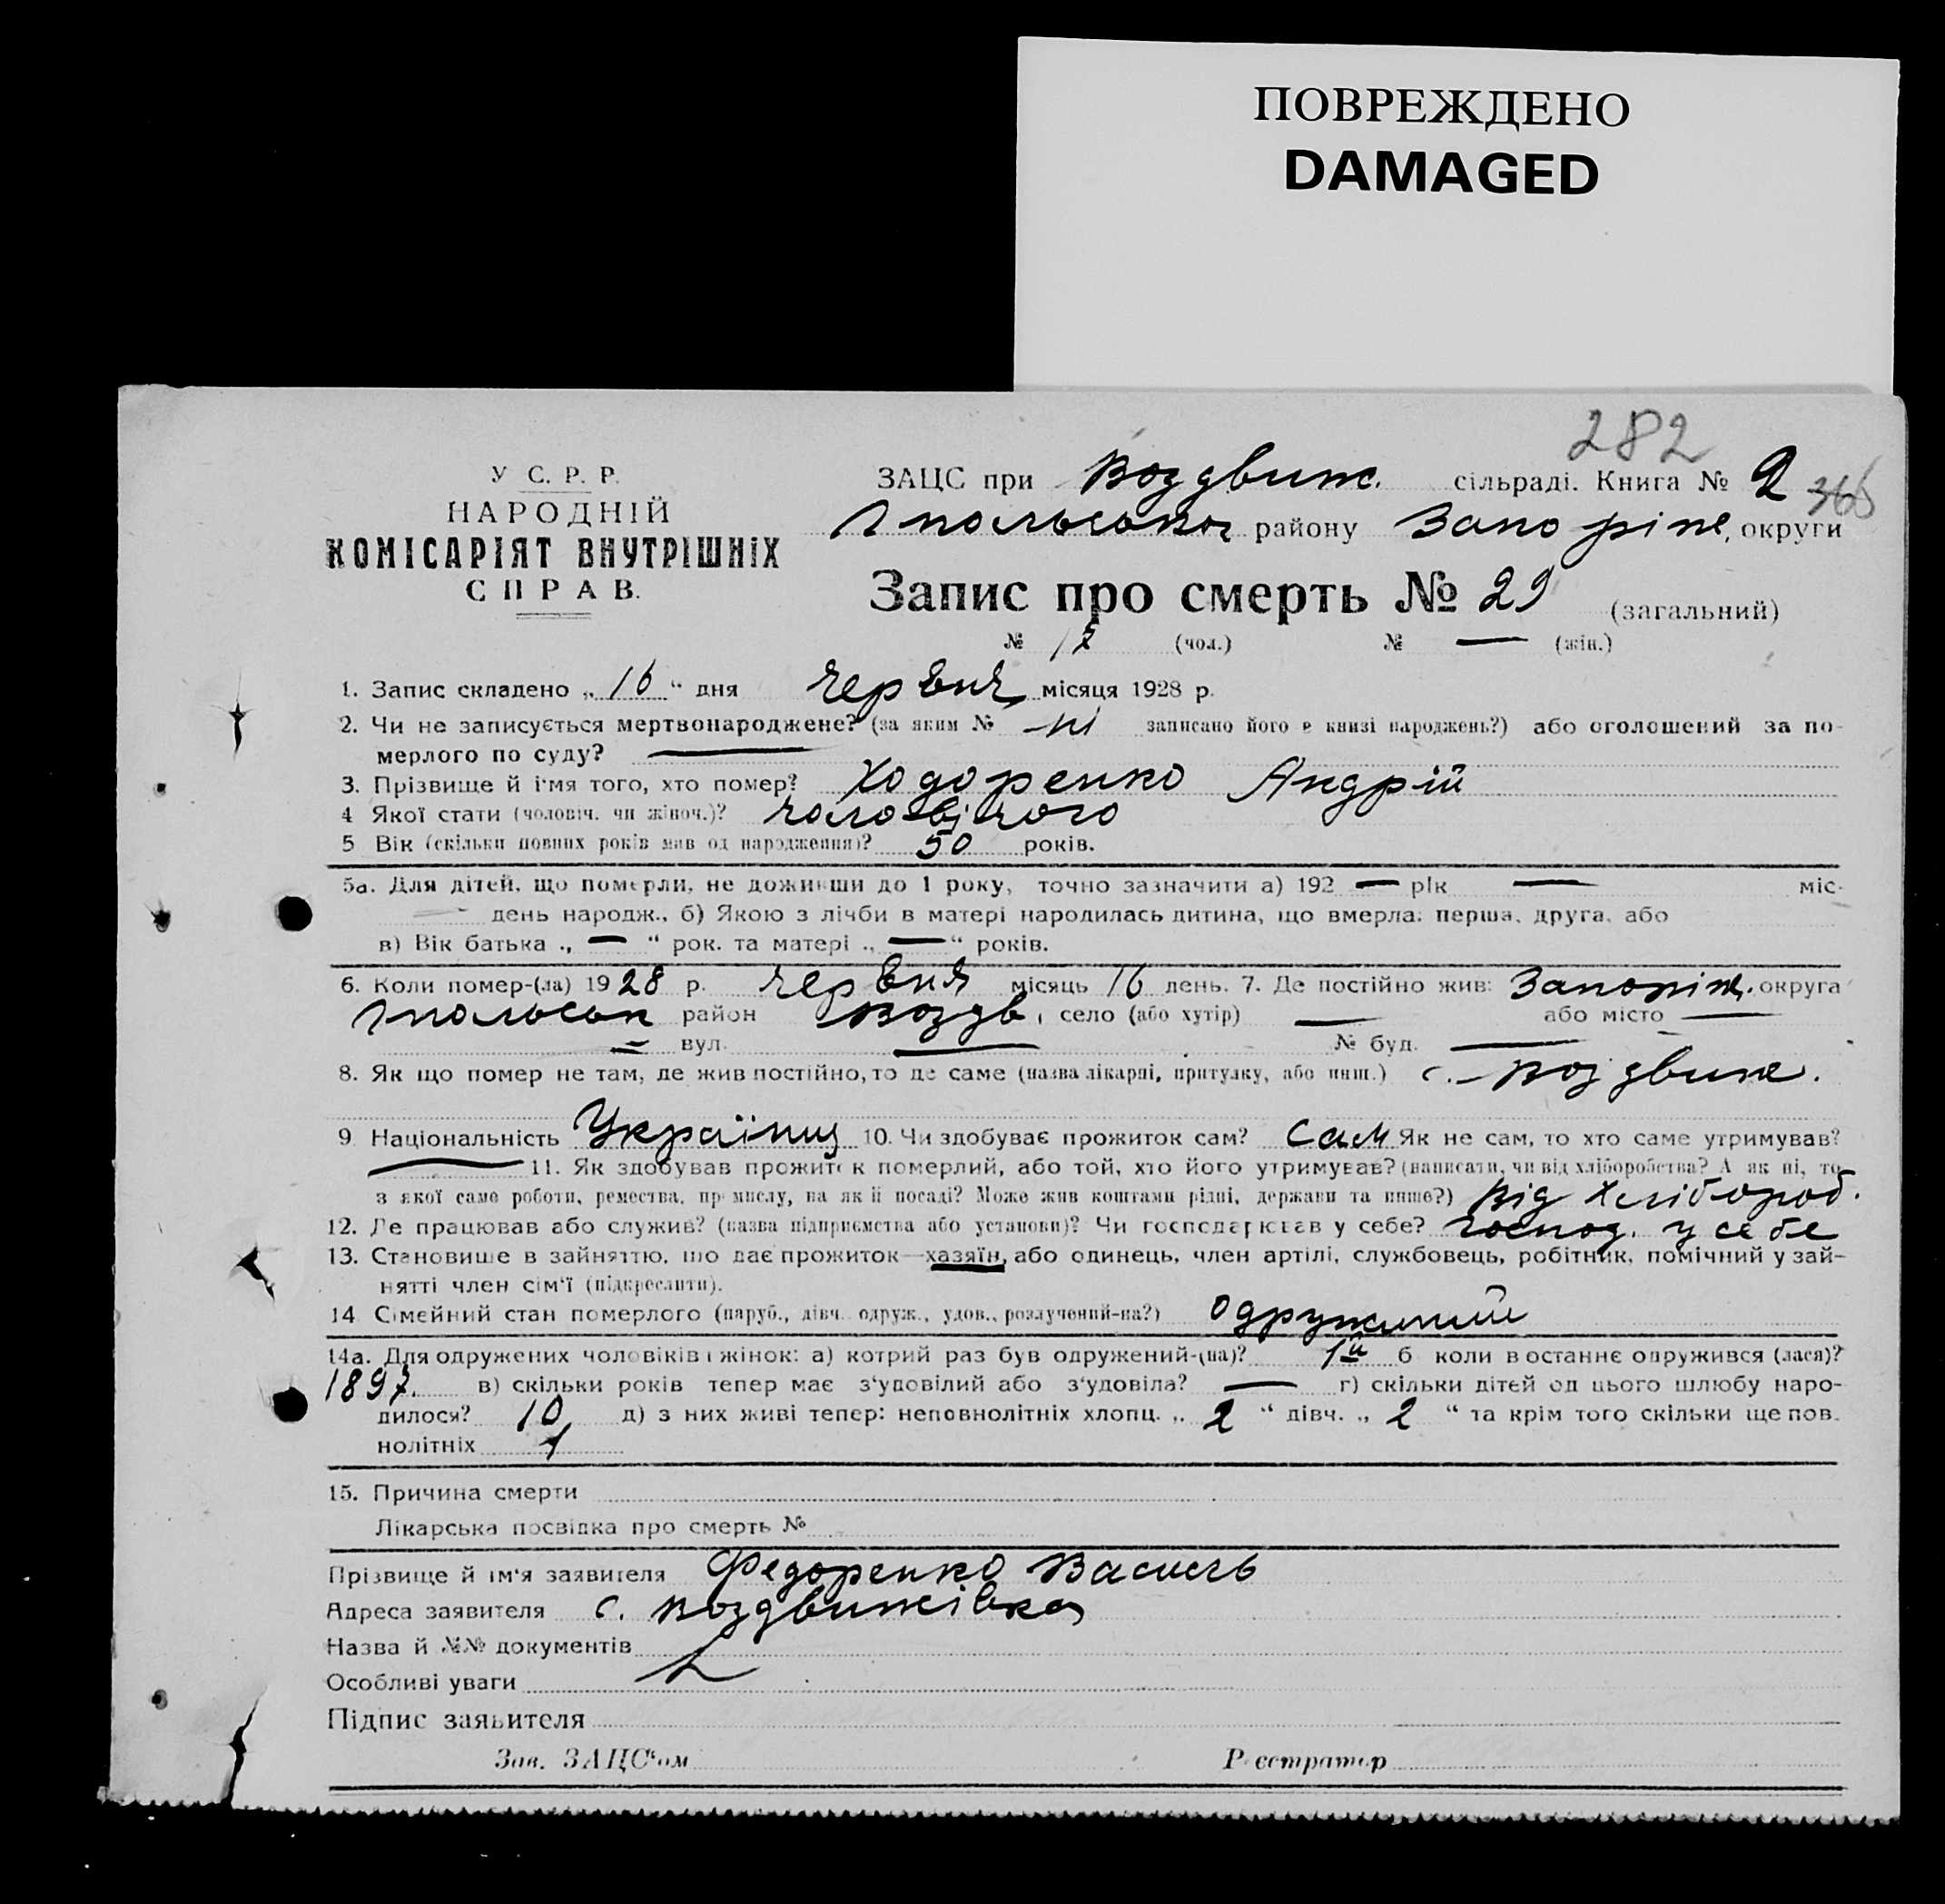 ПОВРЕЖДЕНО
DAMAGED
282
У С. Р. Р.
НАРОДНІЙ
КОМІСАРІЯТ ВНУТРІШНІХ
СПРАВ.
ЗАЦС при Воздвиж. сільраді. Книга № 2
365
Гпольського району Запоріж. округи
Запис про смерть № 29 (загальний)
№ 17 (чол.) № — (жін.)
1. Запис складено „16“ дня червня місяця 1928 р.
2. Чи не записується мертвонароджене? (за яким № ні записано його в книзі народжень?) або оголошений за по-
мерлого по суду? —
3. Прізвище й і'мя того, хто помер? Ходоренко Андрій
4 Якої стати (чоловіч. чи жіноч.)? чоловічого
5 Вік (скільки повних років мав од народження)? 50 років.
5а. Для дітей, що померли, не доживши до 1 року, точно зазначити а) 192 — рік — міс-
— день народж., б) Якою з лічби в матері народилась дитина, що вмерла: перша, друга, або
в) Вік батька „ — “ рок. та матері „ — “ років.
6. Коли помер-(ла) 1928 р. червня місяць 16 день. 7. Де постійно жив: Запоріж. округа
Гпольськ район Воздв. село (або хутір) — або місто —
— вул. — № буд. —
8. Як що помер не там, де жив постійно, то де саме (назва лікарні, притулку, або инш.) с. Воздвиж.
9 Національність Українц 10. Чи здобуває прожиток сам? Сам Як не сам, то хто саме утримував?
— 11. Як здобував прожиток померлий, або той, хто його утримував? (написати, чи від хліборобства? А як ні, то
з якої саме роботи, ремества, промислу, на якій посаді? Може жив коштами рідні, держави та инше?) Від Хлібороб.
12. Де працював або служив? (назва підприємства або установи)? Чи господарював у себе? господ. у себе
13. Становище в зайняттю, що дає прожиток—хазяїн, або одинець, член артілі, службовець, робітник, помічний у зай-
нятті член сім'ї (підкреслити).
14 Сімейний стан померлого (паруб., дівч. одруж., удов., розлучений-на?) одружиний
14а. Для одружених чоловіків і жінок: а) котрий раз був одружений-(на)? 1й б коли востаннє одружився (лася)?
1897. в) скільки років тепер має з'удовілий або з'удовіла? — г) скільки дітей од цього шлюбу наро-
дилося? 10 д) з них живі тепер: неповнолітніх хлопц. „ 2 “ дівч. „ 2 “ та крім того скільки ще пов-
нолітніх 1
15. Причина смерти
Лікарська посвідка про смерть №
Прізвище й ім'я заявителя Федоренко Василь
Адреса заявителя с. Воздвижівка
Назва й №№ документів
Особливі уваги
Підпис заявителя
Зав. ЗАЦС'ом Реєстратор